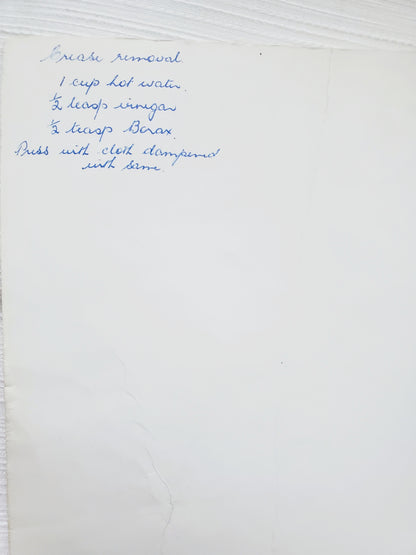 Crease removal.
1 cup hot water.
½ teasp vinegar
½ teasp Borax.
Press with cloth dampened
with same.